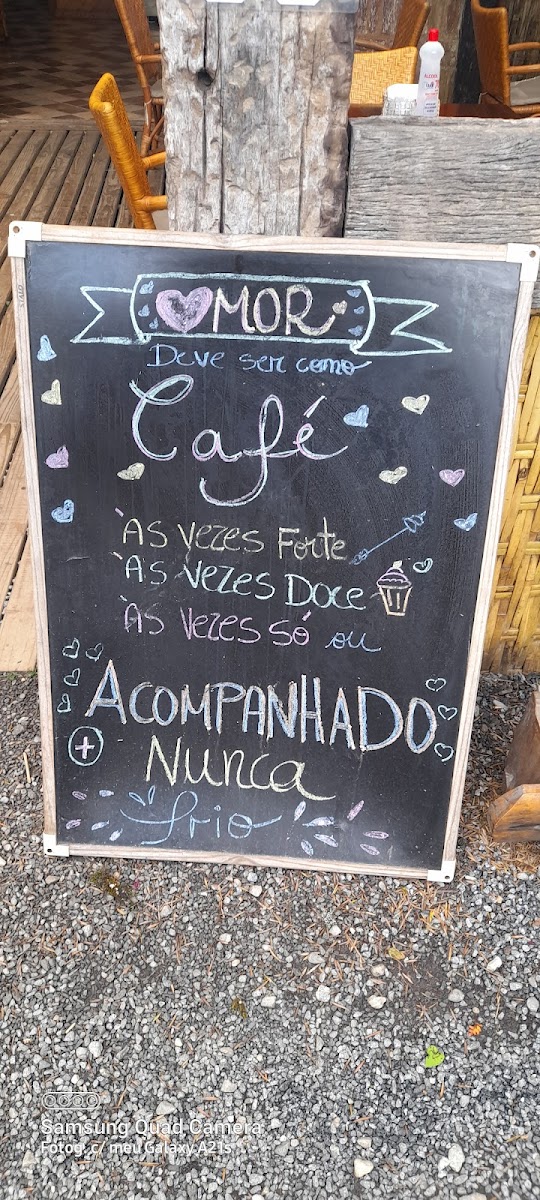 ♥MOR
Deve ser como
Café
Às vezes Forte
Às vezes Doce
Às vezes só ou
ACOMPANHADO
+ Nunca
frio
Samsung Quad Camera
Fotog. c/ meu Galaxy A21s